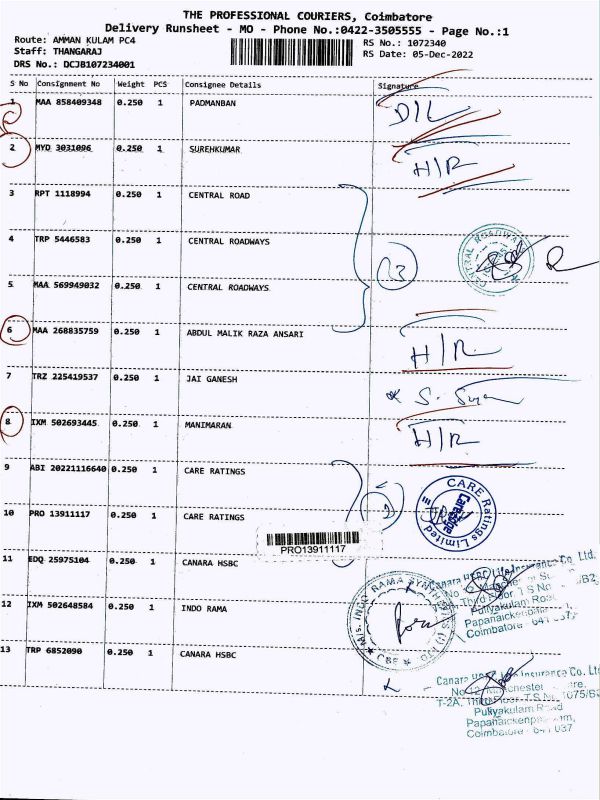 THE PROFESSIONAL COURIERS, Coimbatore
Delivery Runsheet - MO - Phone No.:0422-3505555 - Page No.:1
Route: AMMAN KULAM PC4
Staff: THANGARAJ
DRS No.: DCJB107234001
RS No.: 1072340
RS Date: 05-Dec-2022
S No Consignment No Weight PCS Consignee Details Signature
1 MAA 858409348 0.250 1 PADMANBAN D/L
2 MYD 3031096 0.250 1 SUREHKUMAR H/R
3 RPT 1118994 0.250 1 CENTRAL ROAD
4 TRP 5446583 0.250 1 CENTRAL ROADWAYS
CENTRAL ROADWAY
5 MAA 569949032 0.250 1 CENTRAL ROADWAYS
6 MAA 268835759 0.250 1 ABDUL MALIK RAZA ANSARI H/R
7 TRZ 225419537 0.250 1 JAI GANESH
8 IXM 502693445 0.250 1 MANIMARAN H/R
9 ABI 20221116640 0.250 1 CARE RATINGS
CARE Ratings Limited
10 PRO 13911117 0.250 1 CARE RATINGS
PRO13911117
11 EDQ 25975104 0.250 1 CANARA HSBC
Canara HSBC Life Insurance Co. Ltd.
Puliyakulam Road
Papanaickenpalayam,
Coimbatore - 641 037
12 IXM 502648584 0.250 1 INDO RAMA
M/s. INDO RAMA SYNTHETICS (I) LTD.
CBE
13 TRP 6852090 0.250 1 CANARA HSBC
Canara HSBC Life Insurance Co. Ltd
No 12, Manchester Square,
T-2A, Third Floor, T.S No. 1075/B2
Puliyakulam Road
Papanaickenpalayam,
Coimbatore - 641 037